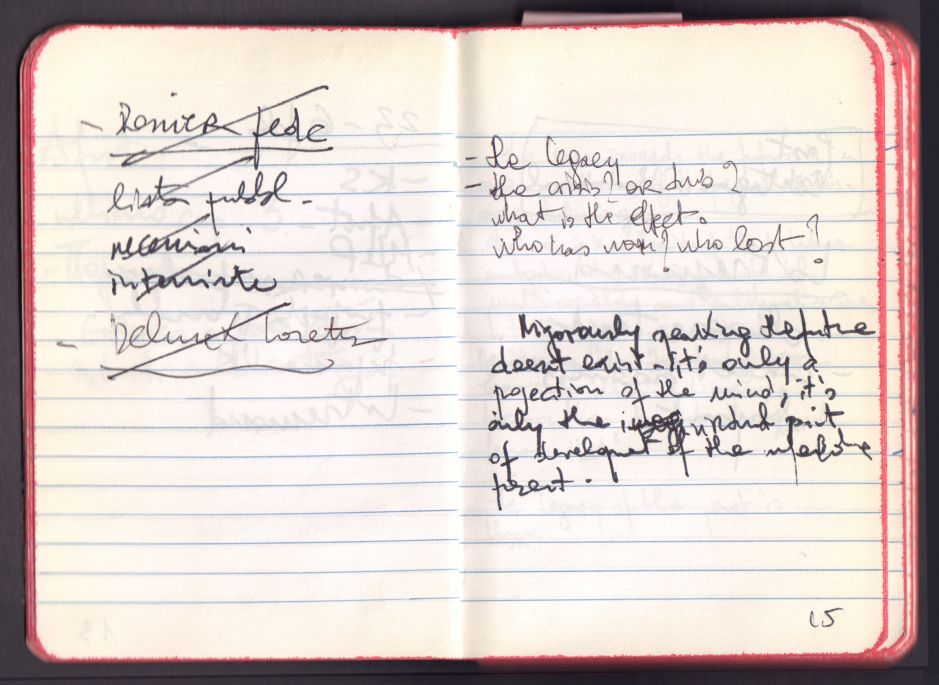 - fede
lista pubbl.
recensioni
interviste
-
- the legacy
- the crisis? or dubs?
what is the effect.
who has won? who lost?
Rigorously speaking the future
doesn't exist - it's only a
projection of the mind, it's
only the
of development of the
present.
15